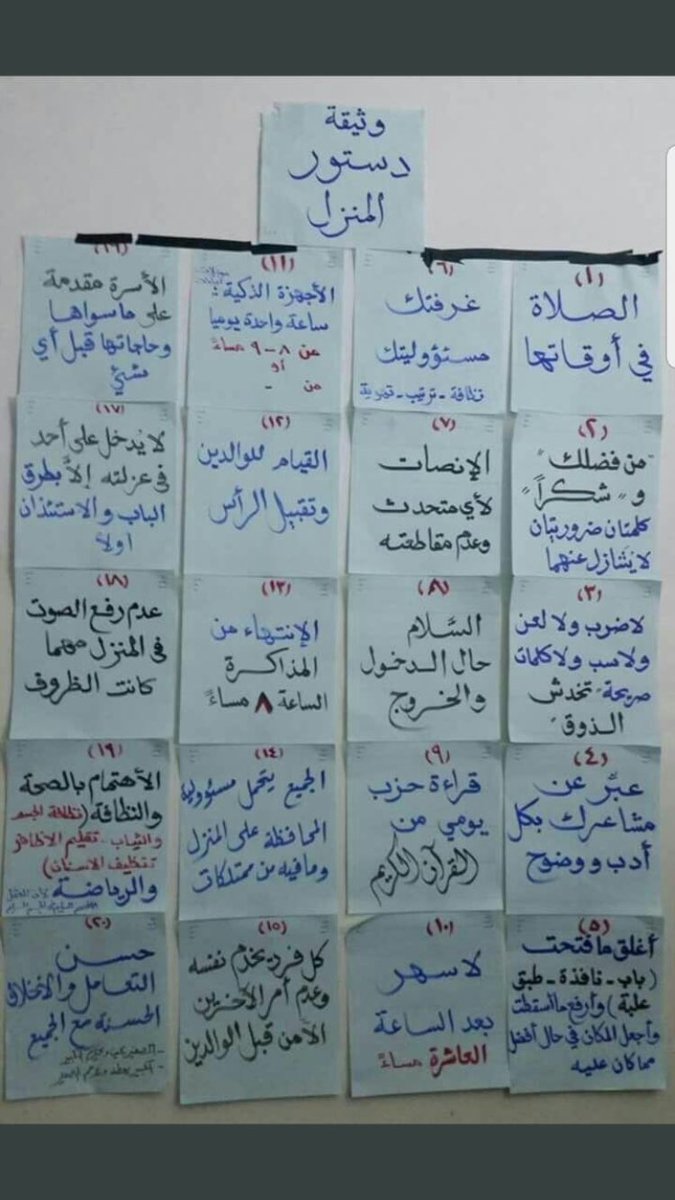 وثيقة
دستور
المنزل
(١)
الصلاة
في أوقاتها
(٢)
"من فضلك"
و "شكراً"
كلمتان ضروريتان
لا يتنازل عنهما
(٣)
لا ضرب ولا لعن
ولا سب ولا كلمات
صريحة "تخدش
الذوق"
(٤)
عبّر عن
مشاعرك بكل
أدب ووضوح
(٥)
أغلق ما فتحت
(باب - نافذة - طبق
علبة) وأرفع ما أسقطت
وأجعل المكان في حال أفضل
مما كان عليه
(٦)
غرفتك
مسئووليتك
نظافة - ترتيب - تهوية
(٧)
الإنصات
لأي متحدث
وعدم مقاطعته
(٨)
السَّلام
حال الدخول
والخروج
(٩)
قراءة حزب
يومي من
القرآن الكريم
(١٠)
لا سهر
بعد الساعة
العاشرة مساءً
(١١)
الأجهزة الذكية:
ساعة واحدة يوميا
من ٨ - ٩ مساءً
أو
من -
(١٢)
القيام للوالدين
وتقبيل الرأس
(١٣)
الإنتهاء من
المذاكرة
الساعة ٨ مساءً
(١٤)
الجميع يتحمل مسئوولية
المحافظة على المنزل
وما فيه من ممتلكات
(١٥)
كل فرد يخدم نفسه
وعدم أمر الآخرين
الا من قبل الوالدين
(١٦)
الأسرة مقدمة
على ما سواها
وحاجاتها قبل أي
شئ
(١٧)
لا يُدخل على أحد
في عزلته إلاَّ بطرق
الباب والاستئذان
اولاً
(١٨)
عدم رفع الصوت
في المنزل مهما
كانت الظروف
(١٩)
الأهتمام بالصحة
والنظافة (نظافة الجسم
والثياب - تقليم الأظافر
تنظيف الاسنان)
والرياضة لأن العقل
السليم في الجسم السليم
(٢٠)
حسن
التعامل والأخلاق
الحسنة مع الجميع
- الصغير يحترم الكبير
- الكبير يعطف